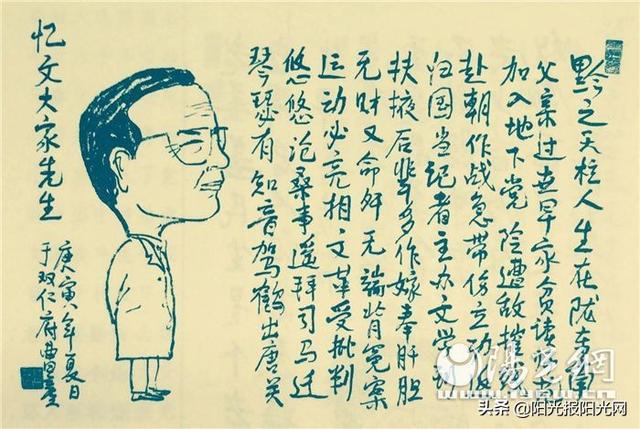 黔之天柱人生在陇东
父亲过世早家贫读
加入地下党险遭敌摧残
赴朝作战急带伤立功
归国当记者主办文学
扶掖后辈多作嫁奉肝胆
无财又命舛无端背冤案
运动必亮相文革受批判
悠悠沧桑事遥拜司马迁
琴瑟有知音驾鹤出唐关
忆文大家先生
庚寅年夏日
于双仁府曲里
阳光网
头条@阳光报阳光网